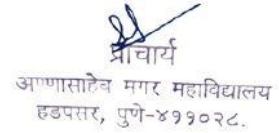 प्राचार्य
अण्णासाहेब मगर महाविद्यालय
हडपसर, पुणे-४११०२८.